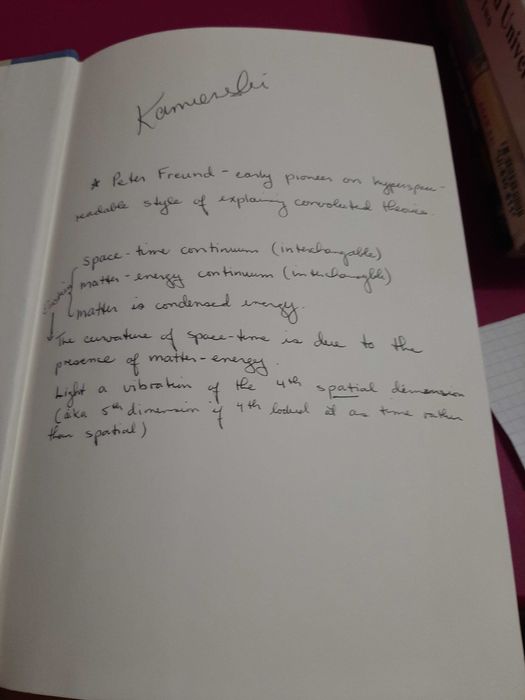 Kamierski
* Peter Freund - early pioneer on hyperspace -
readable style of explaining convoluted theories.
space-time continuum (interchangable)
matter-energy continuum (interchangble)
matter is condensed energy.
The curvature of space-time is due to the
presence of matter-energy.
Light a vibration of the 4th spatial demension
(aka 5th dimension if 4th looked at as time rather
than spatial)